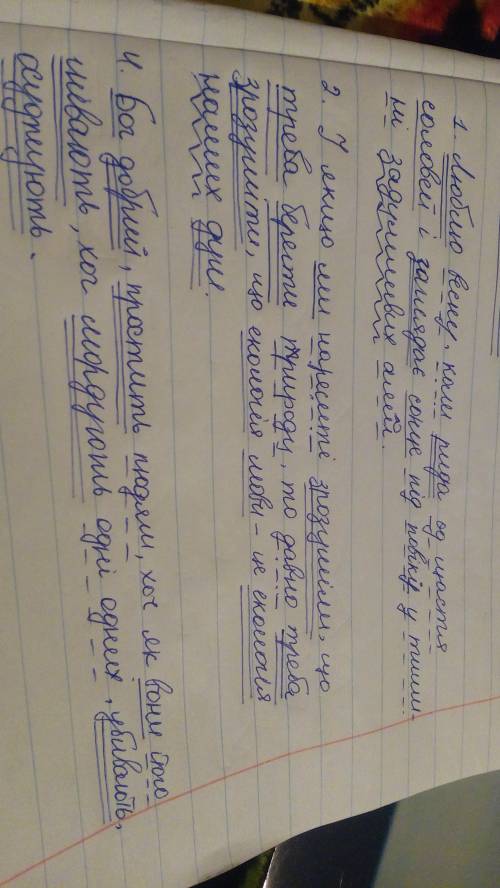 1. Люблю весну, коли рида од щастя
соловей і заглядає сонце під повіки у тиши-
ні задумливих алей.
2. І якщо ми нарешті зрозуміли, що
треба берегти природу, то давно треба
зрозуміти, що екологія мови - це екологія
наших душ.
4. Бог добрий, простить людям, хоч як вони його
гнівають, хоч мордують одні одних, убивають,
осуджують.